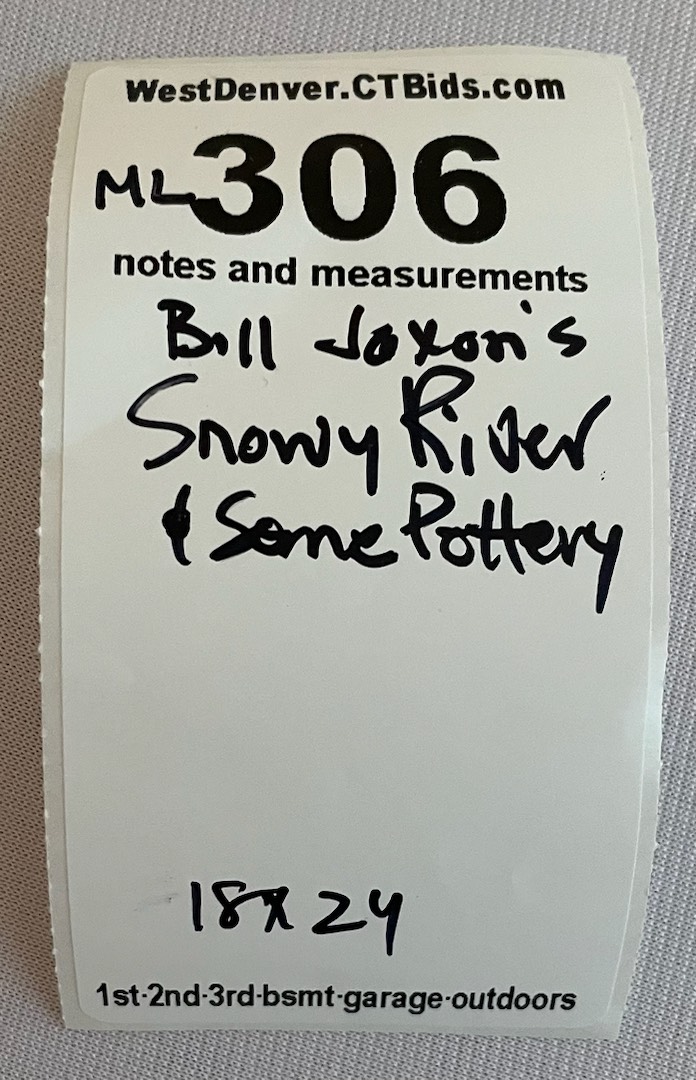 WestDenver.CTBids.com
ML 306
notes and measurements
Bill Joxon's
Snowy River
& Some Pottery
18x24
1st-2nd-3rd-bsmt-garage-outdoors